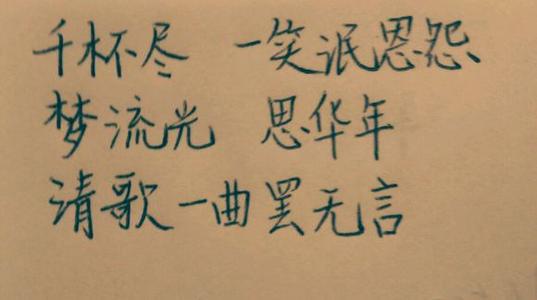 千杯尽 一笑泯恩怨
梦流光 思华年
清歌一曲罢无言